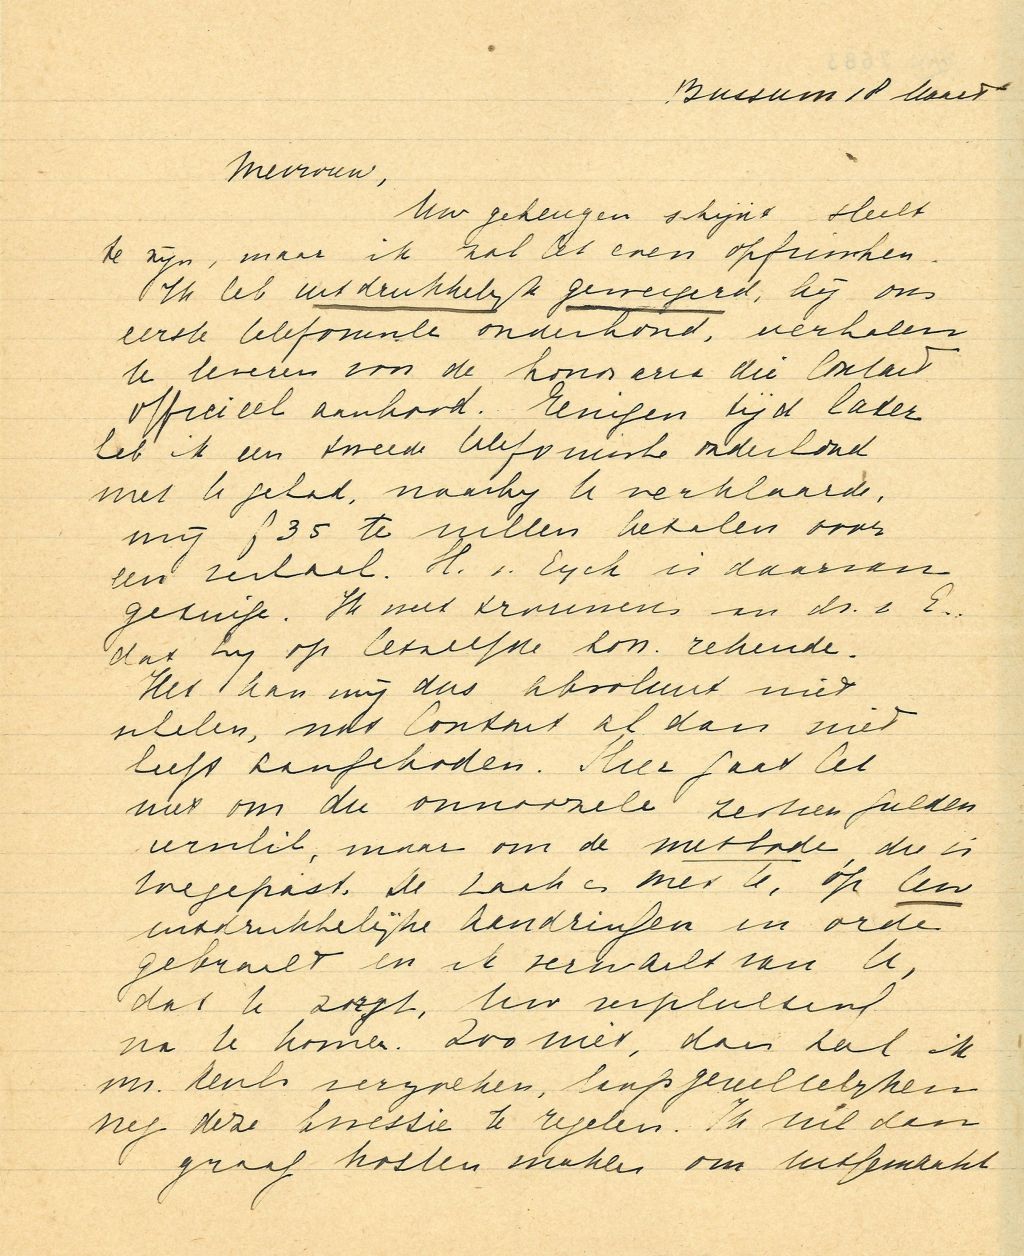 Bussum 18 Maart
Mevrouw,
Uw geheugen schijnt slecht
te zijn, maar ik zal het even opfrisschen.
Ik heb uitdrukkelijk geweigerd, bij ons
eerste telefonische onderhoud, verhalen
te leveren voor de honoraria die Contact
officieel aanbood. Eenigen tijd later
heb ik een tweede telefonische onderhoud
met U gehad, waarbij U verklaarde,
mij f 35 te willen betalen voor
een verhaal. H. v. Eyck is daarvan
getuige. Ik weet trouwens van dr. v. E..
dat hij op hetzelfde hon. rekende.
Het kan mij dus absoluut niet
schelen, wat Contact al dan niet
heeft aangeboden. Hier gaat het
niet om die onnoozele tientien gulden
verschil, maar om de methode, die is
toegepast. De zaak is met U, op Uw
uitdrukkelijke aandringen in orde
gebracht en ik verwacht van U,
dat U zorgt, Uw verplichtend
na te komen. Zoo niet, dan zal ik
mr. verzoeken, langs gerechtelijken
weg deze kwessie te regelen. Ik wil dan
graag kosten maken om uitgemaakt